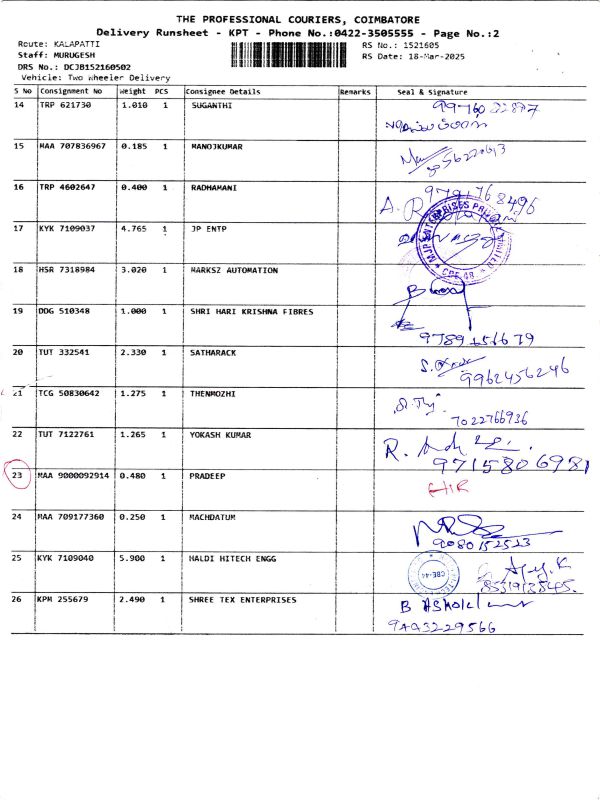 THE PROFESSIONAL COURIERS, COIMBATORE
Delivery Runsheet - KPT - Phone No.:0422-3505555 - Page No.:2
Route: KALAPATTI RS No.: 1521605
Staff: MURUGESH RS Date: 18-Mar-2025
DRS No.: DCJB152160502
Vehicle: Two Wheeler Delivery
S No Consignment No Weight PCS Consignee Details Remarks Seal & Signature
14 TRP 621730 1.010 1 SUGANTHI
15 MAA 707836967 0.185 1 MANOJKUMAR
16 TRP 4602647 0.400 1 RADHAMANI
9791768496
17 KYK 7109037 4.765 1 JP ENTP
18 HSR 7318984 3.020 1 MARKSZ AUTOMATION
19 DDG 510348 1.000 1 SHRI HARI KRISHNA FIBRES
20 TUT 332541 2.330 1 SATHARACK
9962456246
21 TCG 50830642 1.275 1 THENMOZHI
7022766936
22 TUT 7122761 1.265 1 YOKASH KUMAR
9715806981
23 MAA 9000092914 0.480 1 PRADEEP
24 MAA 709177360 0.250 1 MACHDATUM
9080152523
25 KYK 7109040 5.900 1 HALDI HITECH ENGG
26 KPM 255679 2.490 1 SHREE TEX ENTERPRISES
9443229566